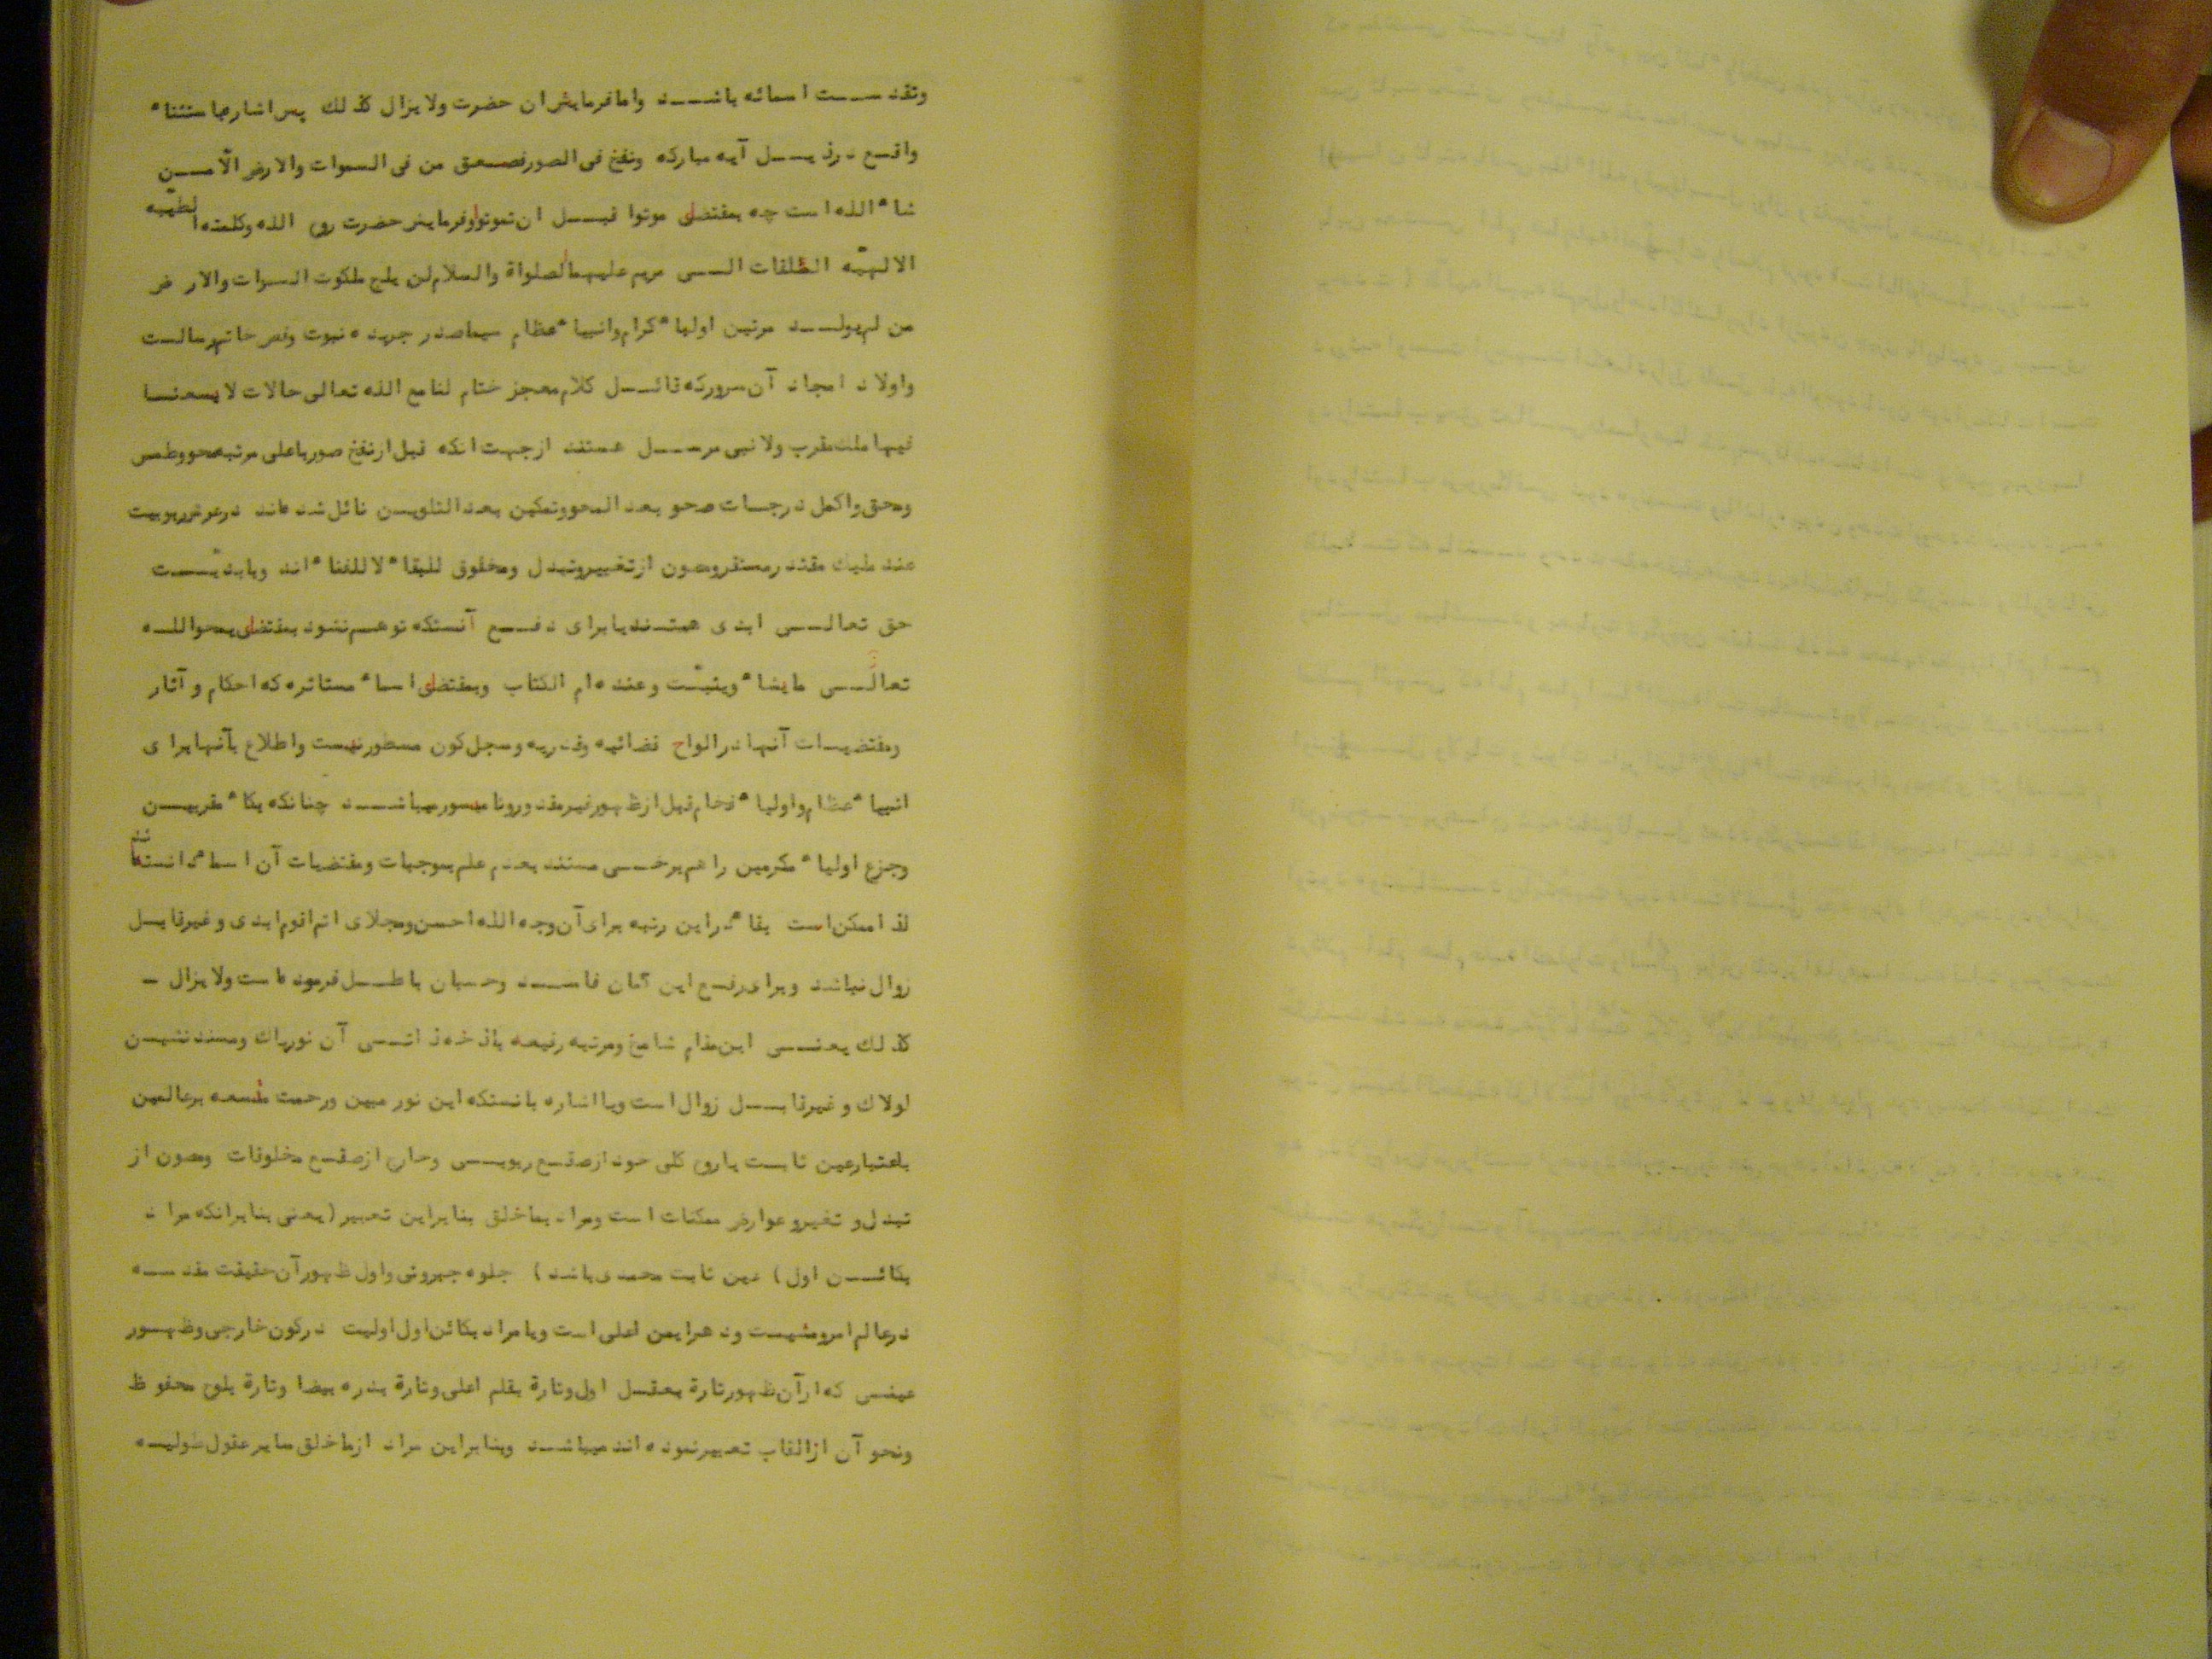 وتقدست اسمائه باشند واما فرمایش ان حضرت ولا یزال کذلك پس اشاره باستثناء
واقع در ذیل آیه مبارکه ونفخ فی الصور فصعق من فی السموات والارض الّا من
شاء الله است چه بمقتضای موتوا قبل ان تموتوا وفرمایش حضرت روح الله وکلمته الطیّبه
الالهیّه المطلقات السی مریم علیهما الصلواة والسلام لن یلج ملکوت السموات والارض
من لم یولد مرتین اولیاء کرام وانبیاء عظام سیما صدر جریده نبوت وفص خاتم رسالت
واولاد امجاد آن سرور که قائل کلام معجز ختام لنا مع الله تعالی حالات لا یسعنا
فیها ملك مقرب ولا نبی مرسل هستند از جهت انکه قبل از نفخ صور باعلی مرتبه محو وطمس
ومحق واکمل درجات صحو بعد المحو وتمکین بعد التلوین نائل شده اند در عوض ربوبیت
عند ملیك مقتدر مستقر ومصون از تغییر وتبدل ومخلوق للبقاء لا للفناء اند وبابدیّت
حق تعالی ابدی هستند یا برای دفع آنستکه توهم نشود بمقتضای یمحوا الله
تعالی ما یشاء ویثبت وعنده ام الکتاب وبمقتضای اسماء مستاثره که احکام و آثار
ومقتضیات آنها در الواح قضائیه وقدریه وسجل کون مسطور نیست واطلاع بآنها برای
انبیاء عظام واولیاء فخام قبل از ظهور غیر مقدور ونا میسور میباشد چنانکه بکاء مقربین
وجزع اولیاء مکرمین را هم برخی مستند بعدم علم بموجبات ومقتضیات آن اسماء دانسته اند
لذا ممکن است بقاء در این رتبه برای آن وجه الله احسن ومجلای اتم اقوم ابدی و غیر قابل
زوال نباشد وبرای رفع این گمان فاسد وحسبان باطل فرموده است ولا یزال –
کذلك یعنی این مقام شامخ ومرتبه رفیعه باذخه ذاتی آن نور پاك ومسند نشین
لولاك و غیر قابل زوال است ویا اشاره بانستکه این نور مبین ورحمت متسعه بر عالمین
باعتبار عین ثابت یا روح کلی خود از صقع ربوبی وخارج از صقع مخلوقات ومصون از
تبدل و تغیر و عوارض ممکنات است ومراد بما خلق بنابراین تعبیر (یعنی بنابرانکه مراد
بکائن اول) عین ثابت محمدی باشد) جلوه جبروتی واول ظهور آن حقیقت مقدسه
در عالم امر ومشیت ودهر ایمن اعلی است ویا مراد بکائن اول اولیت در کون خارجی وظهور
عینی که از آن ظهور تارة بعقل اول وتارة بقلم اعلی وتارة بدره بیضا وتارة بلوح محفوظ
ونحو آن از القاب تعبیر نموده اند میباشد وبنابراین مراد از ما خلق سایر عقول طولیه